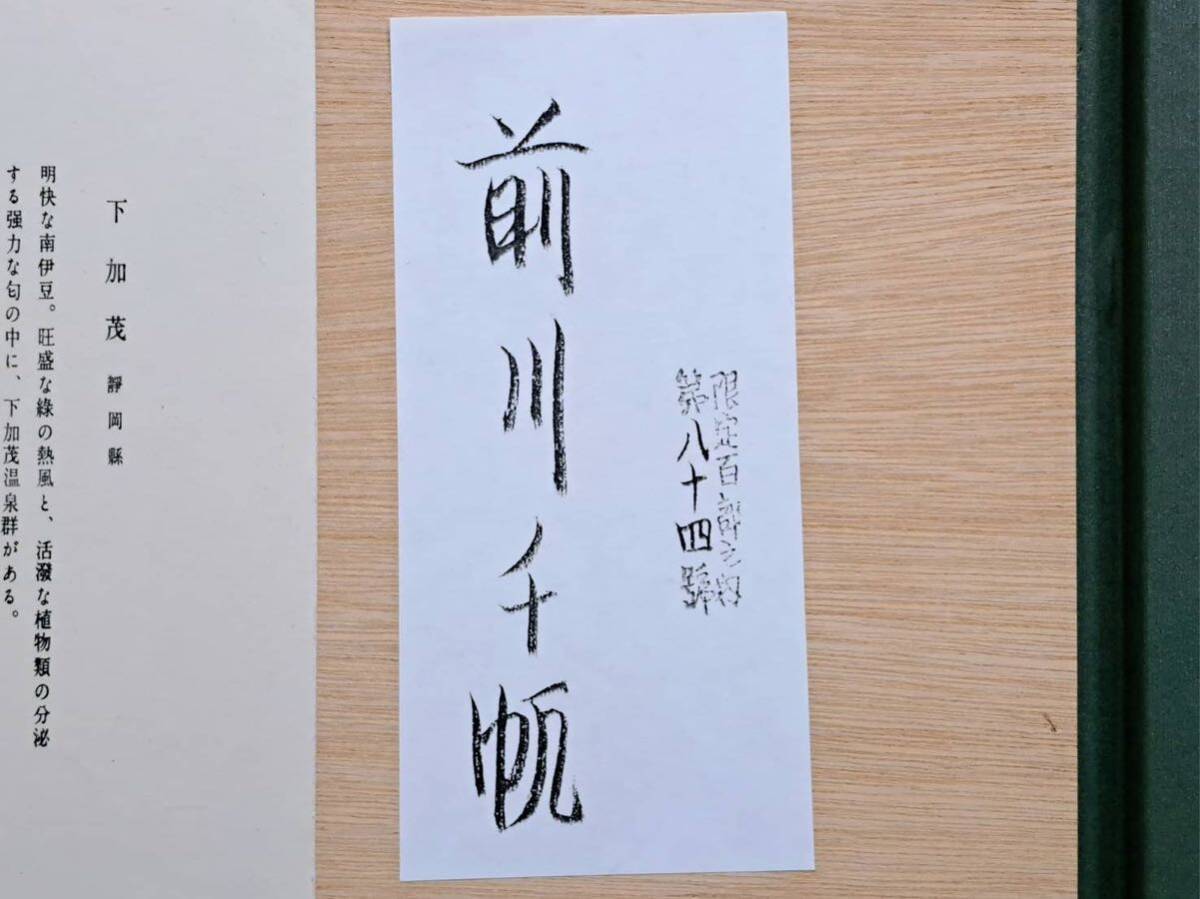 限定百部之内
第八十四號
前川千帆
下加茂 靜岡縣
明快な南伊豆。旺盛な綠の熱風と、活潑な植物類の分泌
する强力な匂の中に、下加茂温泉群がある。